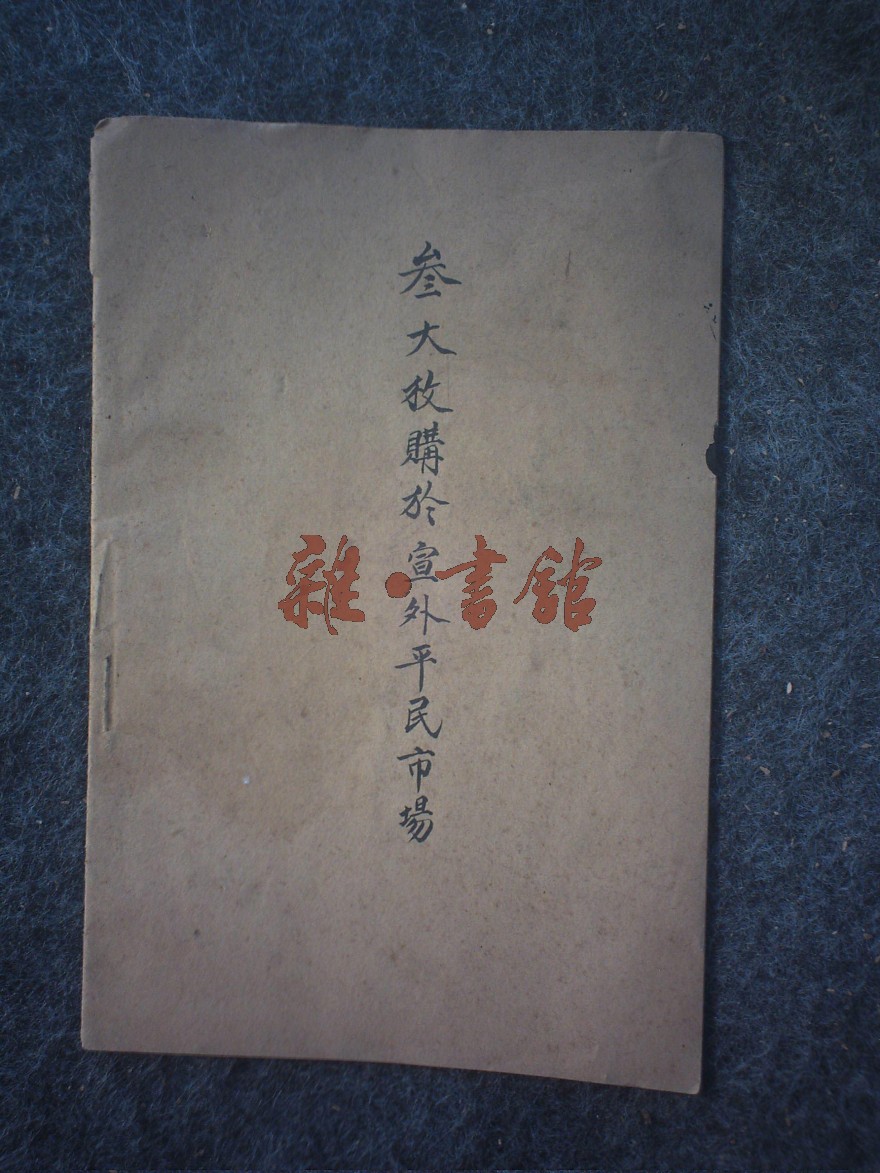 叁大枚購於宣外平民市場
雜·書館